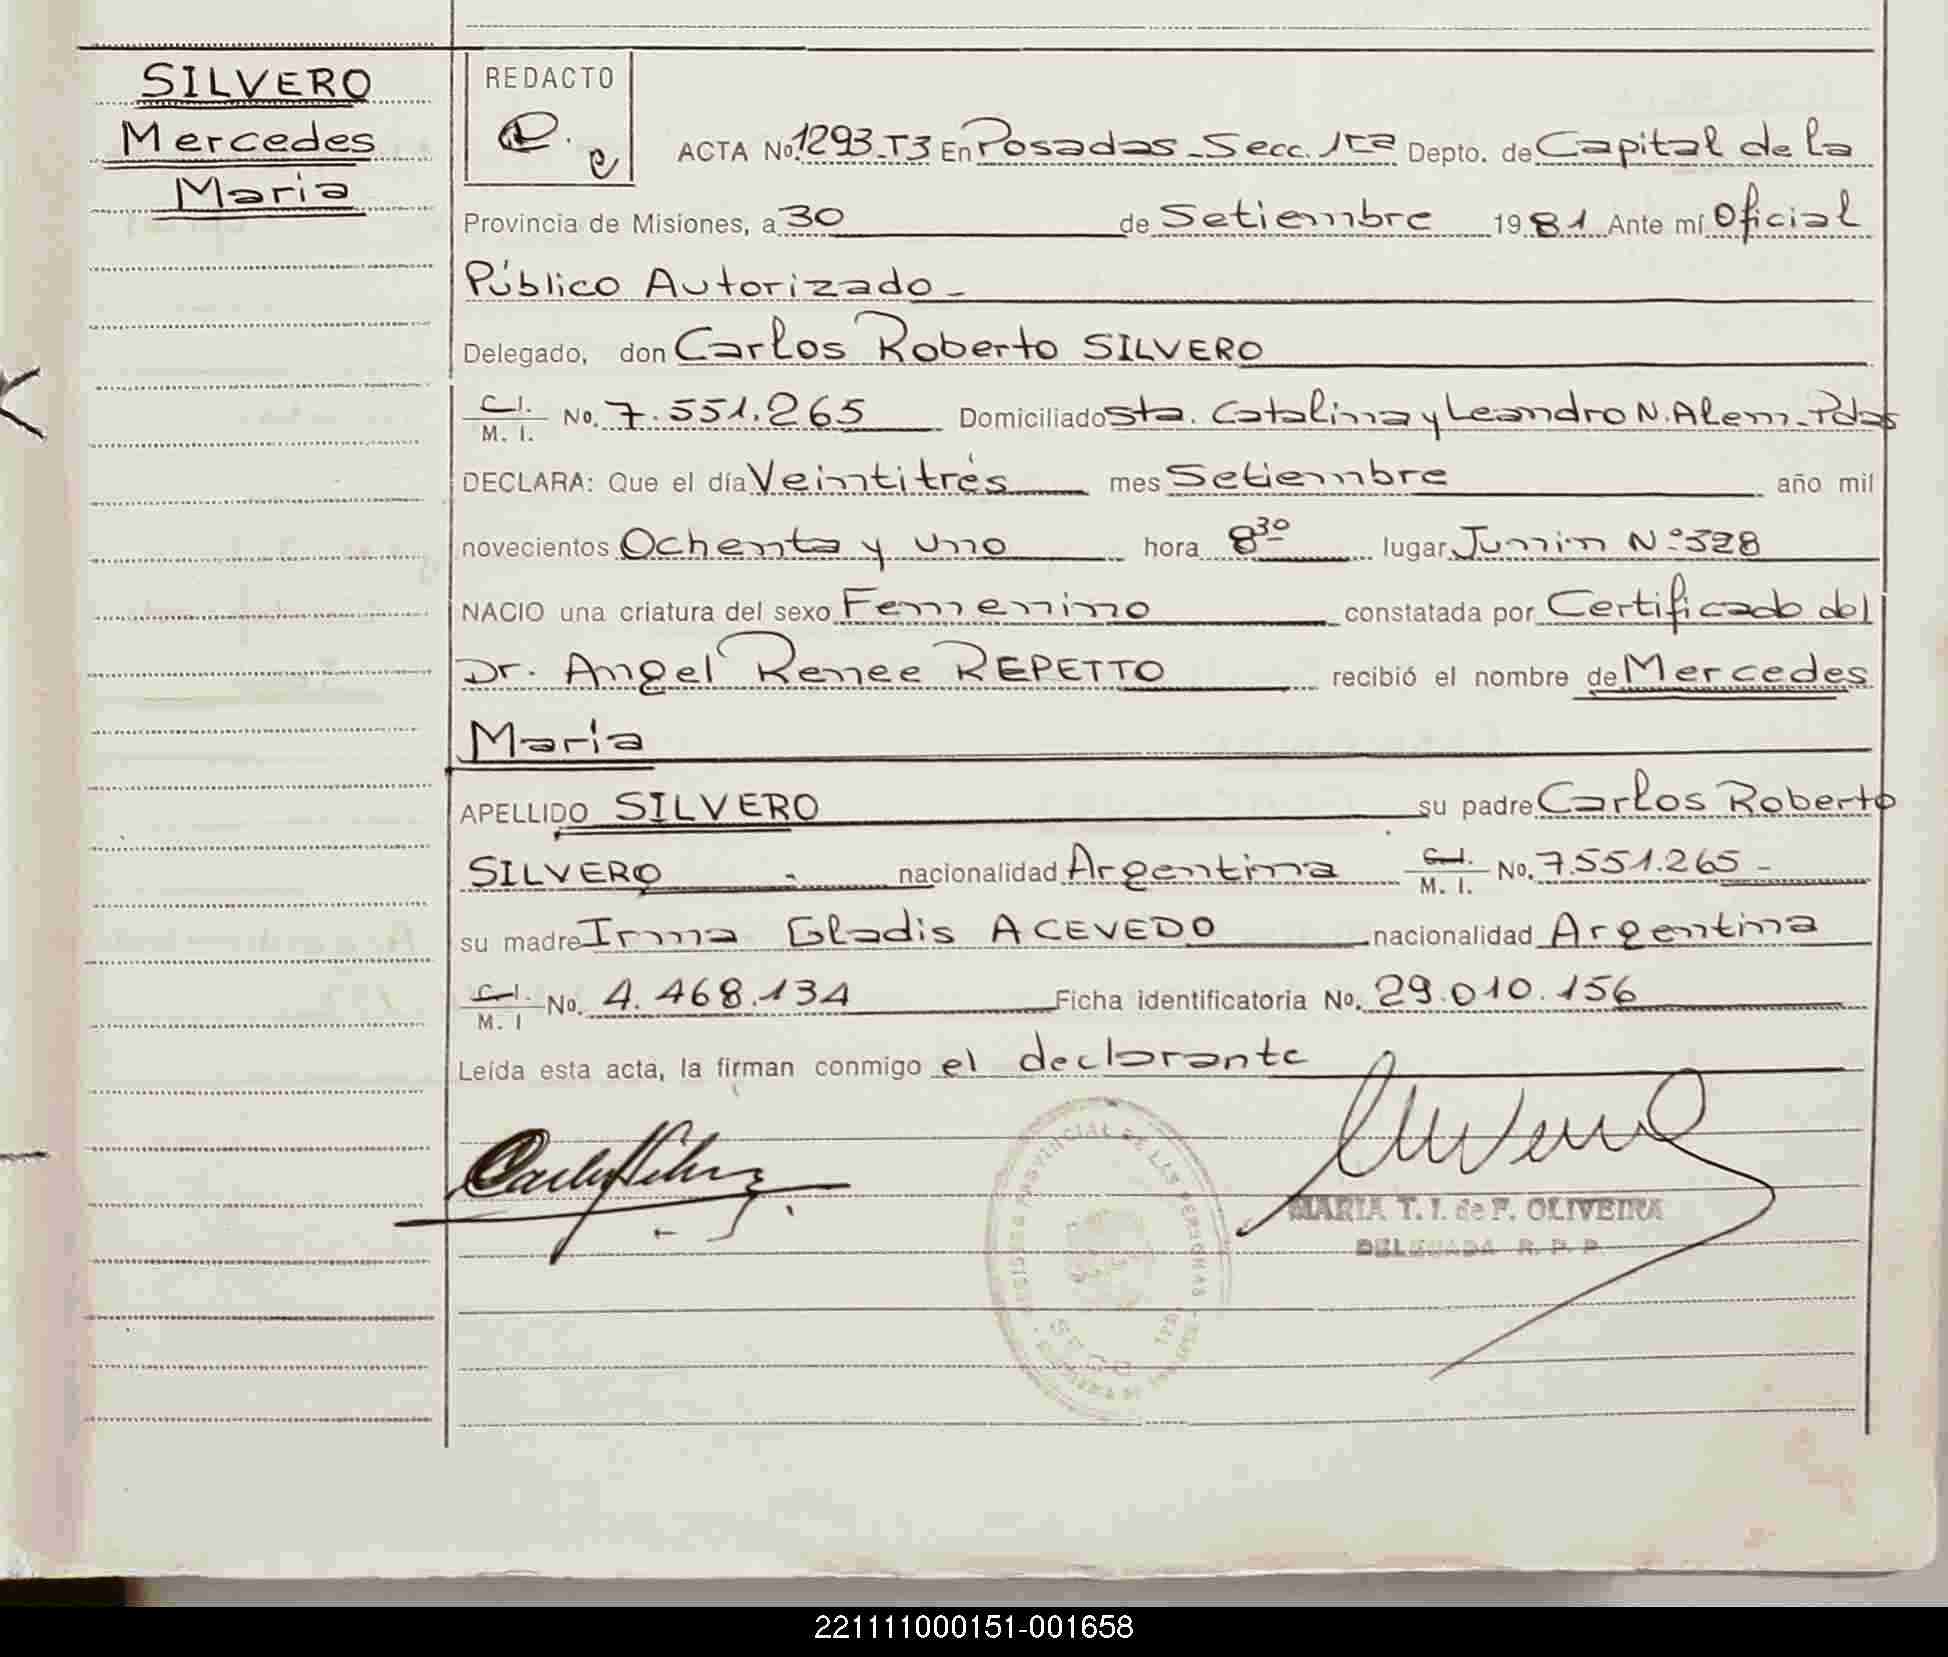 SILVERO
Mercedes
Maria
REDACTO
ACTA No. 1293-T3 En Posadas - Secc. 1ra Depto. de Capital de la
Provincia de Misiones, a 30 de Setiembre 1981 Ante mí Oficial
Público Autorizado -
Delegado, don Carlos Roberto SILVERO
C.I. / M. I. No. 7.551.265 Domiciliado Sta. Catalina y Leandro N. Alem - Pdas
DECLARA: Que el día Veintitrés mes Setiembre año mil
novecientos Ochenta y uno hora 8³⁰ lugar Junin Nº 328
NACIO una criatura del sexo Femenino constatada por Certificado del
Dr. Angel Renee REPETTO recibió el nombre de Mercedes
María
APELLIDO SILVERO su padre Carlos Roberto
SILVERO nacionalidad Argentina C.I. / M. I. No. 7.551.265 -
su madre Irma Gladis ACEVEDO nacionalidad Argentina
C.I. / M. I No. 4.468.134 Ficha identificatoria No. 29.010.156
Leída esta acta, la firman conmigo el declarante
REGISTRO PROVINCIAL DE LAS PERSONAS
MARIA T. I. de F. OLIVEIRA
DELEGADA R. P. P
221111000151-001658